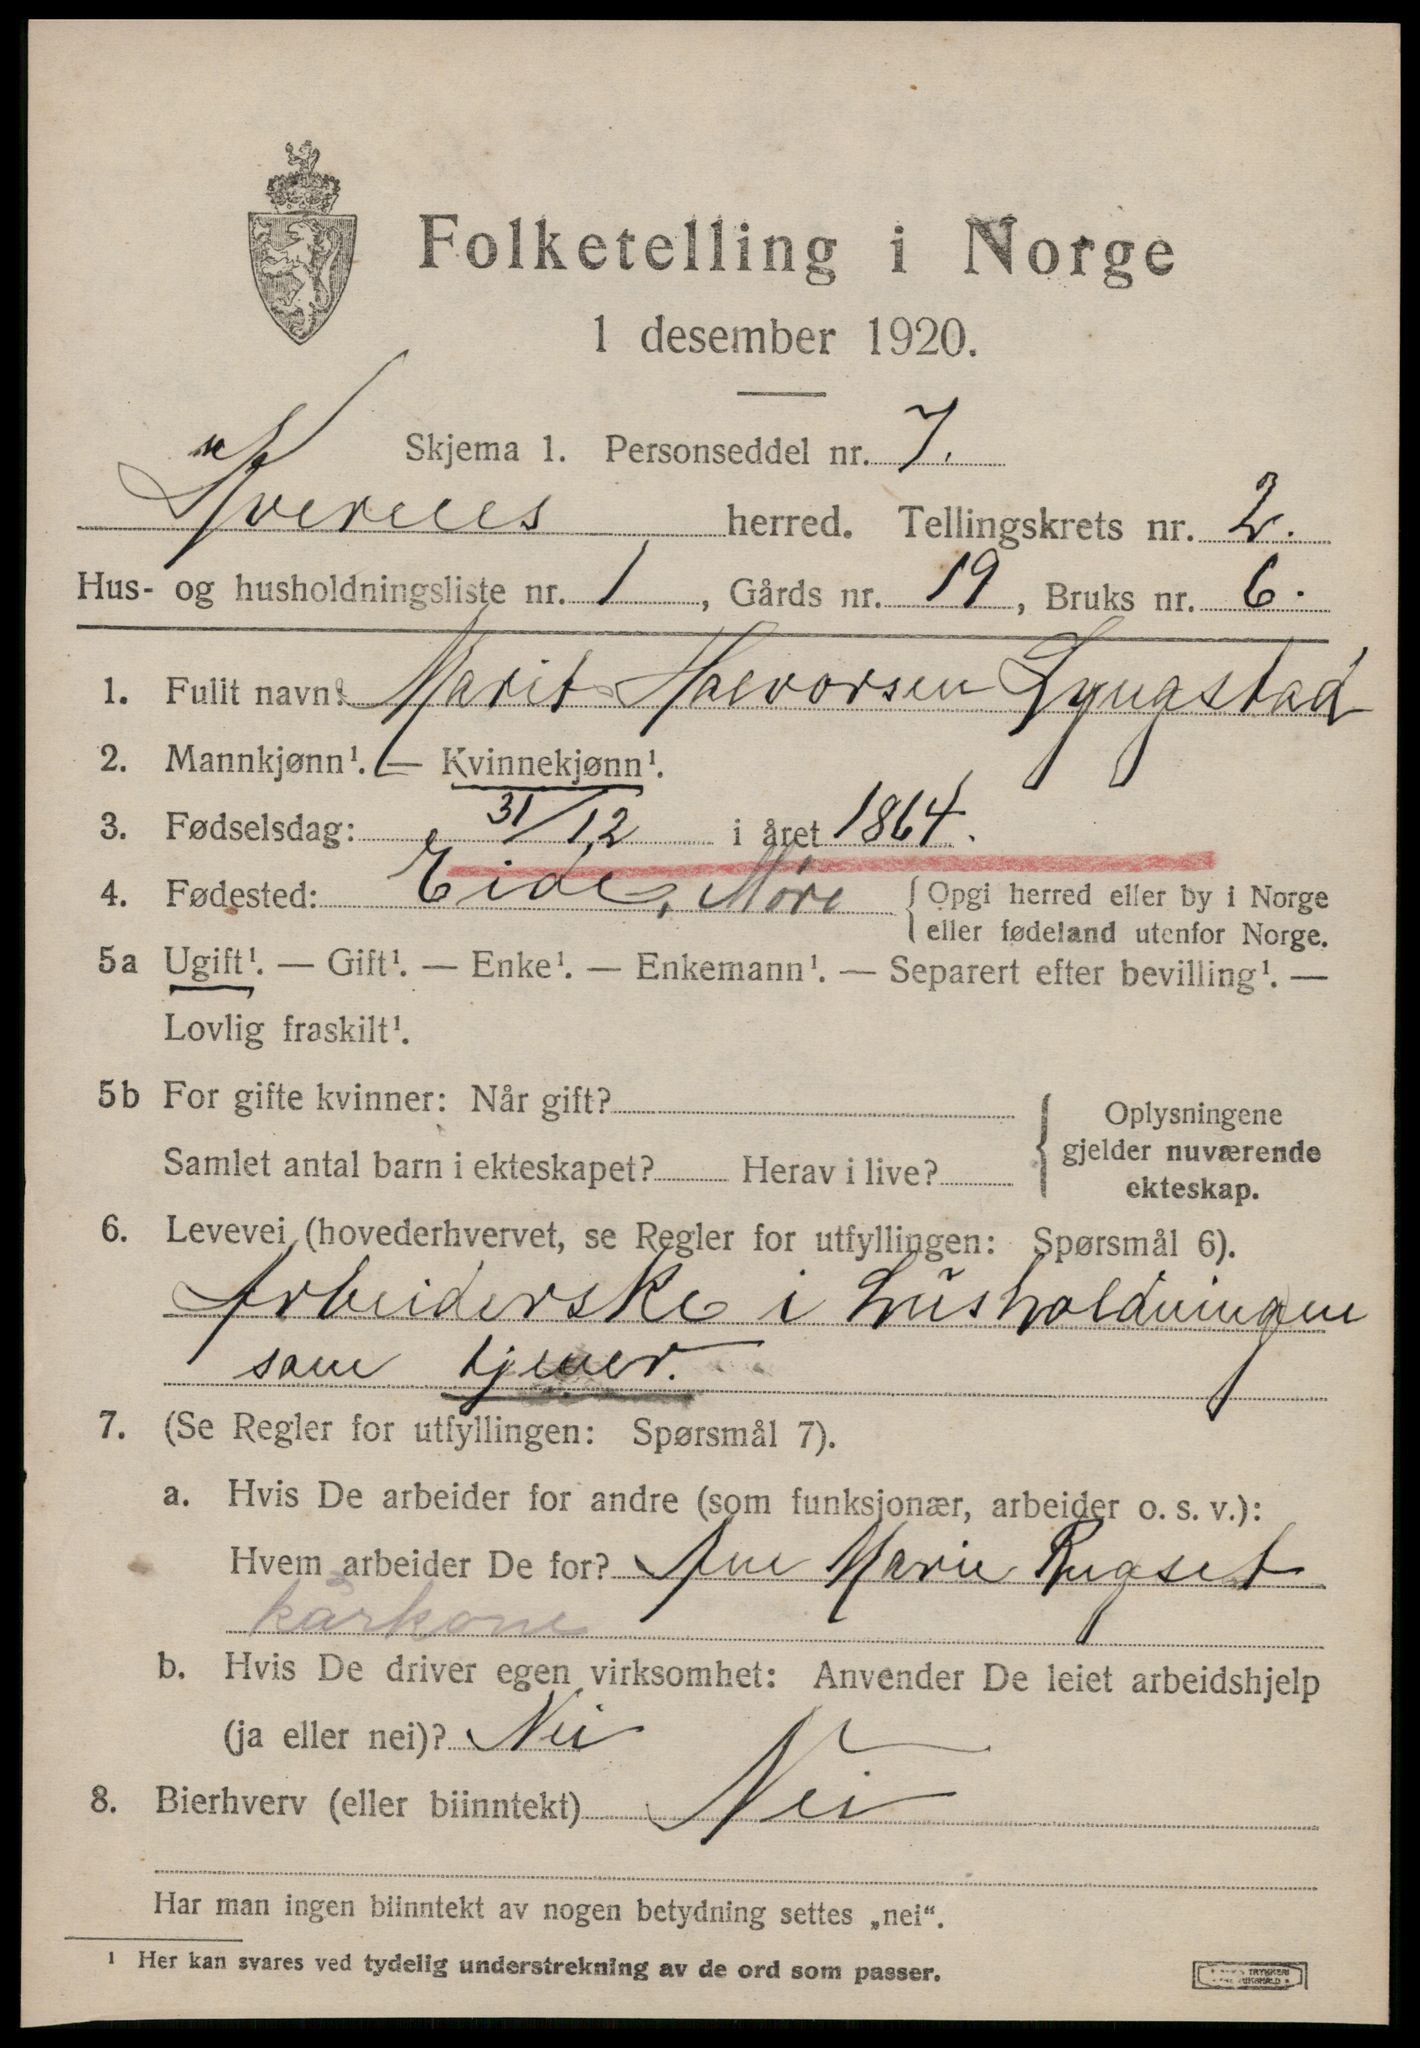 Folketelling i Norge
1 desember 1920.
Skjema 1. Personseddel nr. 7.
Kvernes herred. Tellingskrets nr. 2.
Hus- og husholdningsliste nr. 1, Gårds nr. 19, Bruks nr. 6.
1. Fullt navn: Marit Halvorsen Lyngstad
2. Mannkjønn¹. — Kvinnekjønn¹.
3. Fødselsdag: 31/12 i året 1864.
4. Fødested: Eide, Möre { Opgi herred eller by i Norge
eller fødeland utenfor Norge.
5a Ugift¹. — Gift¹. — Enke¹. — Enkemann¹. — Separert efter bevilling¹. —
Lovlig fraskilt¹.
5b For gifte kvinner: Når gift? { Oplysningene
gjelder nuværende
ekteskap.
Samlet antal barn i ekteskapet? Herav i live?
6. Levevei (hovederhvervet, se Regler for utfyllingen: Spørsmål 6).
Arbeiderske i husholdningen
som tjener.
7. (Se Regler for utfyllingen: Spørsmål 7).
a. Hvis De arbeider for andre (som funksjonær, arbeider o. s. v.):
Hvem arbeider De for? Ane Marie Rugset
kårkone
b. Hvis De driver egen virksomhet: Anvender De leiet arbeidshjelp
(ja eller nei)? Nei
8. Bierhverv (eller biinntekt) Nei
Har man ingen biinntekt av nogen betydning settes „nei“.
¹ Her kan svares ved tydelig understrekning av de ord som passer.